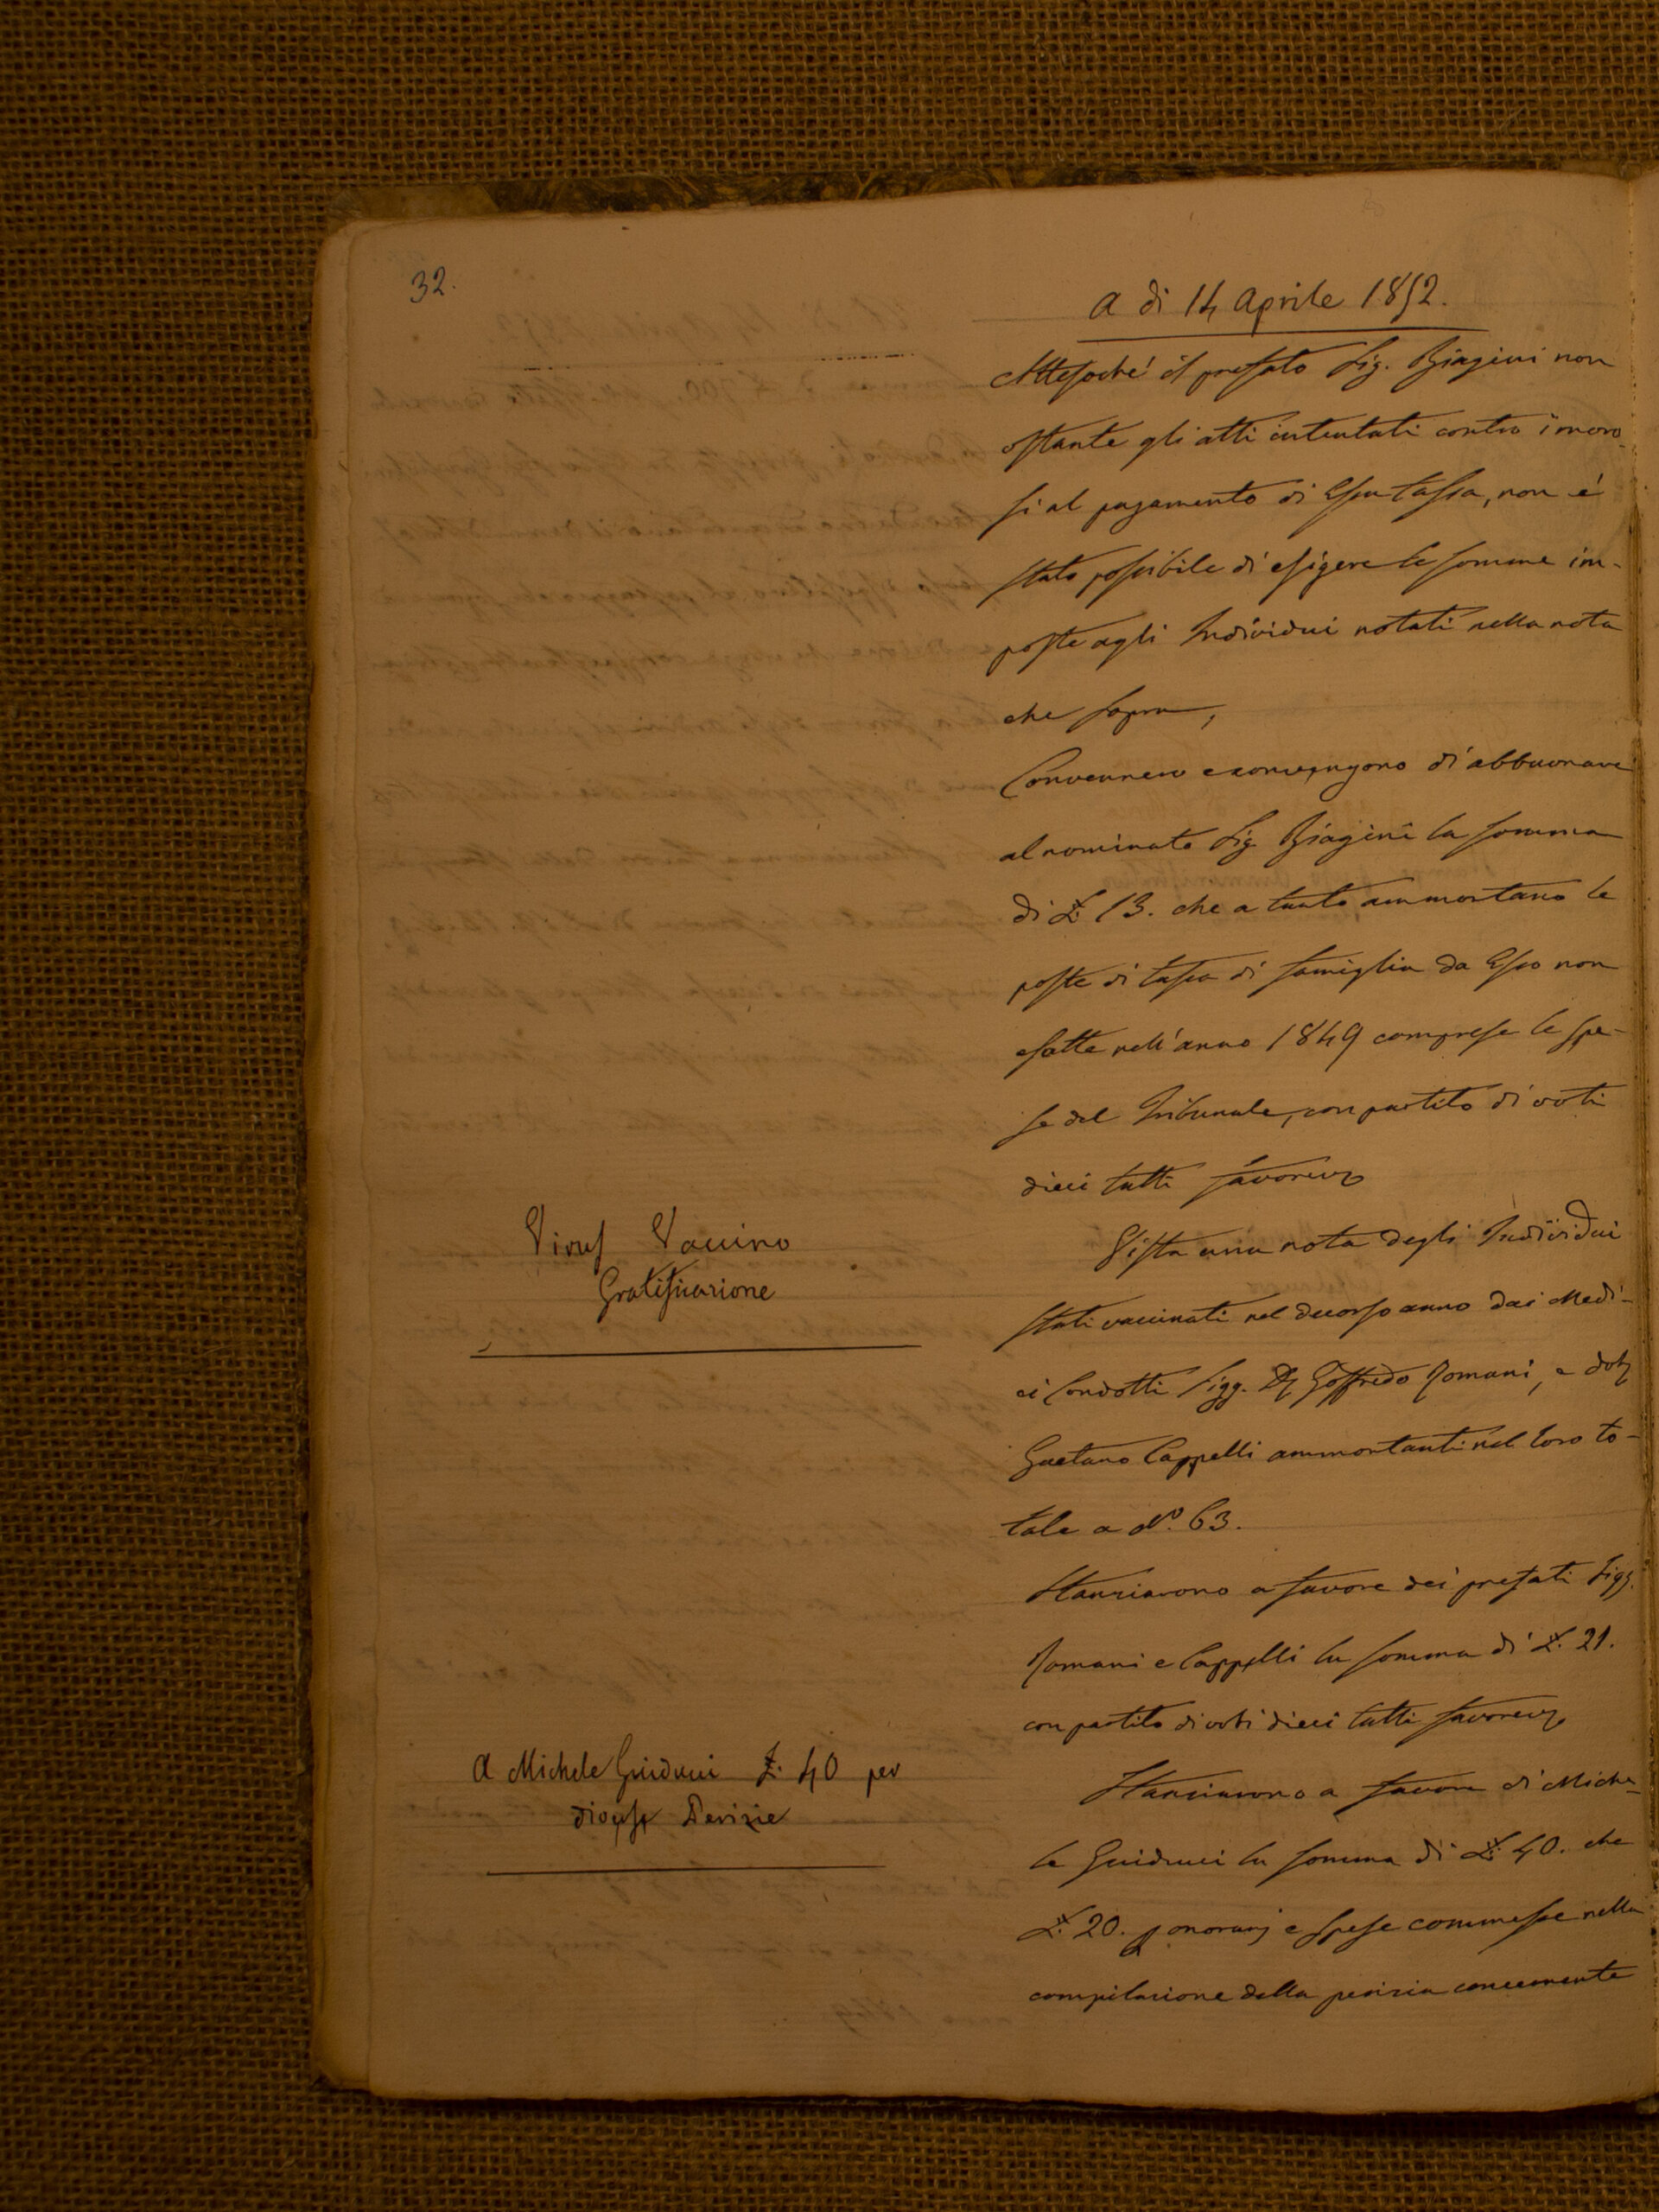 32.
A di 14 Aprile 1852.
Attesoché il prefato Sig. Biagini non
ostante gli atti intentati contro i moro-
si al pagamento di essa tassa, non é
stato possibile di esigere le somme im-
poste agli Individui notati nella nota
che sopra,
Convennero e convengono di abbuonare
al nominato Sig. Biagini la somma
di £. 13. che a tanto ammontano le
poste di tassa di famiglia da esso non
esatte nell'anno 1849 comprese le spe-
se del Tribunale, con partito di voti
dieci tutti favorevi
Virus Vaccino
Gratificazione
Vista una nota degli Individui
stati vaccinati nel decorso anno dai Medi-
ci Condotti Sigg. Dr Goffredo Romani, e dotr
Gaetano Cappelli ammontanti nel loro to-
tale a N°. 63.
Stanziarono a favore dei prefati Sigg.
Romani e Cappelli la somma di £. 21.
con partito di voti dieci tutti favorevi
A Michele Guiducci £. 40 per
diverse Perizie
Stanziarono a favore di Miche-
le Guiducci la somma di £. 40. che
£. 20. p onorarj e spese commesse nella
compilazione della perizia concernente